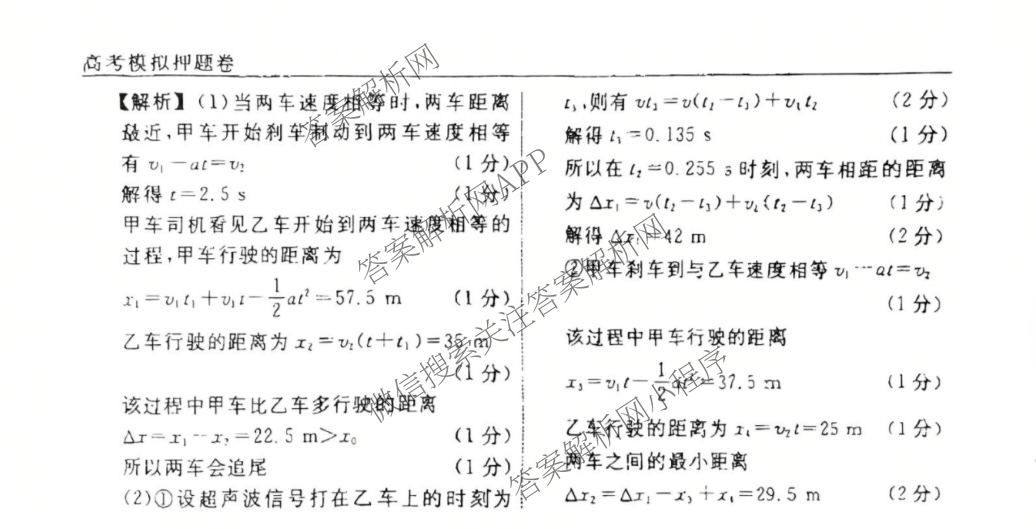 高考模拟押题卷
【解析】(1)当两车速度相等时,两车距离
最近,甲车开始刹车制动到两车速度相等
有 v₁－at=v₂ (1分)
解得 t=2.5 s (1分)
甲车司机看见乙车开始到两车速度相等的
过程,甲车行驶的距离为
x₁=v₁t₁+v₁t－½at²=57.5 m (1分)
乙车行驶的距离为 x₂=v₂(t+t₁)=35 m
(1分)
该过程中甲车比乙车多行驶的距离
Δx=x₁－x₂=22.5 m>x₀ (1分)
所以两车会追尾 (1分)
(2)①设超声波信号打在乙车上的时刻为
t₃,则有 vt₃=v(t₂－t₃)+v₁t₂ (2分)
解得 t₃=0.135 s (1分)
所以在 t₂=0.255 s 时刻,两车相距的距离
为 Δx₁=v(t₂－t₃)+v₂(t₂－t₃) (1分)
解得 Δx₁=42 m (2分)
②甲车刹车到与乙车速度相等 v₁－at=v₂
(1分)
该过程中甲车行驶的距离
x₃=v₁t－½at²=37.5 m (1分)
乙车行驶的距离为 x₄=v₂t=25 m (1分)
两车之间的最小距离
Δx₂=Δx₁－x₃+x₄=29.5 m (2分)
答案解析网
答案解析网APP
微信搜索关注答案解析网
答案解析网小程序